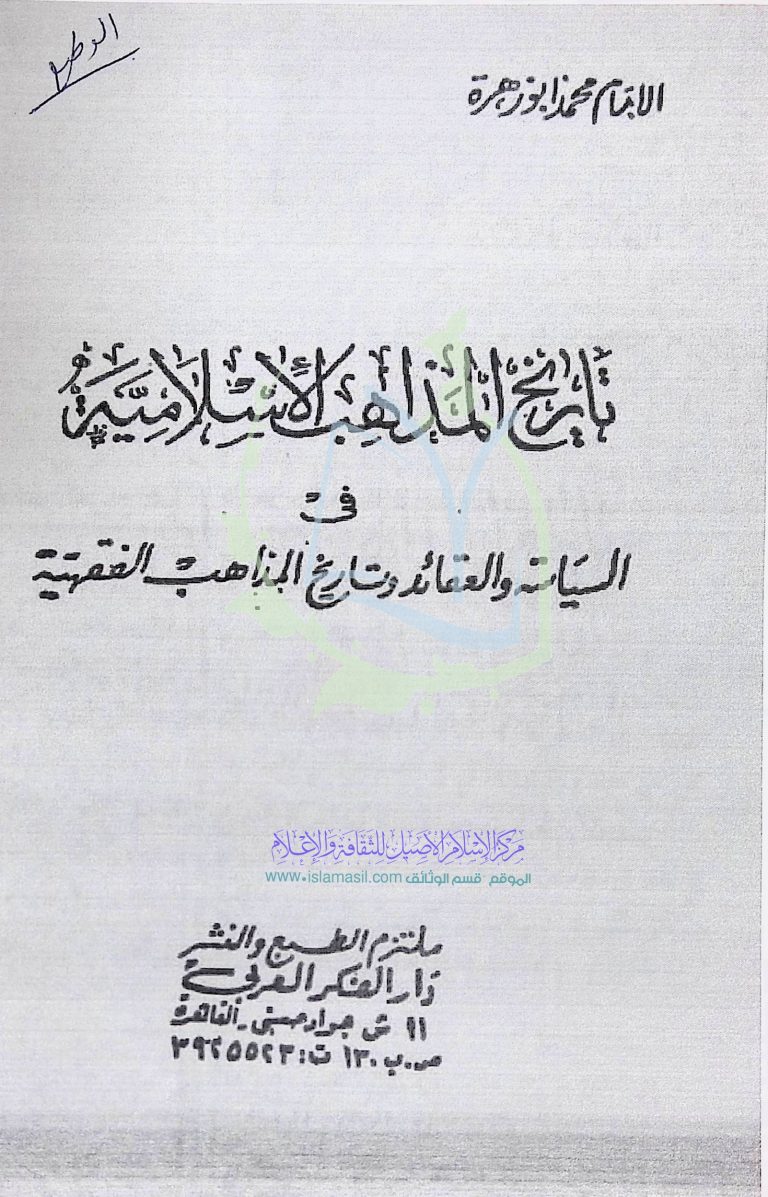 الامام محمد ابو زهرة
تاريخ المذاهب الإسلامية
فى
السياسة والعقائد وتاريخ المذاهب الفقهية
مركز الإسلام الأصيل للثقافة والإعلام
الموقع - قسم الوثائق www.islamasil.com
ملتزم الطبع والنشر
دار الفكر العربى
١١ ش جواد حسنى - القاهرة
ص.ب ١٣٠ ت: ٣٩٢٥٥٢٣